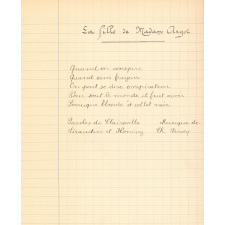 La fille de Madame Angot
Quand on conspire
Quand sans frayeur
On peut se dire conspirateur
Pour tout le monde il faut avoir
Perruque blonde et collet noir
Paroles de Clairville Musique de
Siraudin et Koning Ch. Lecocq